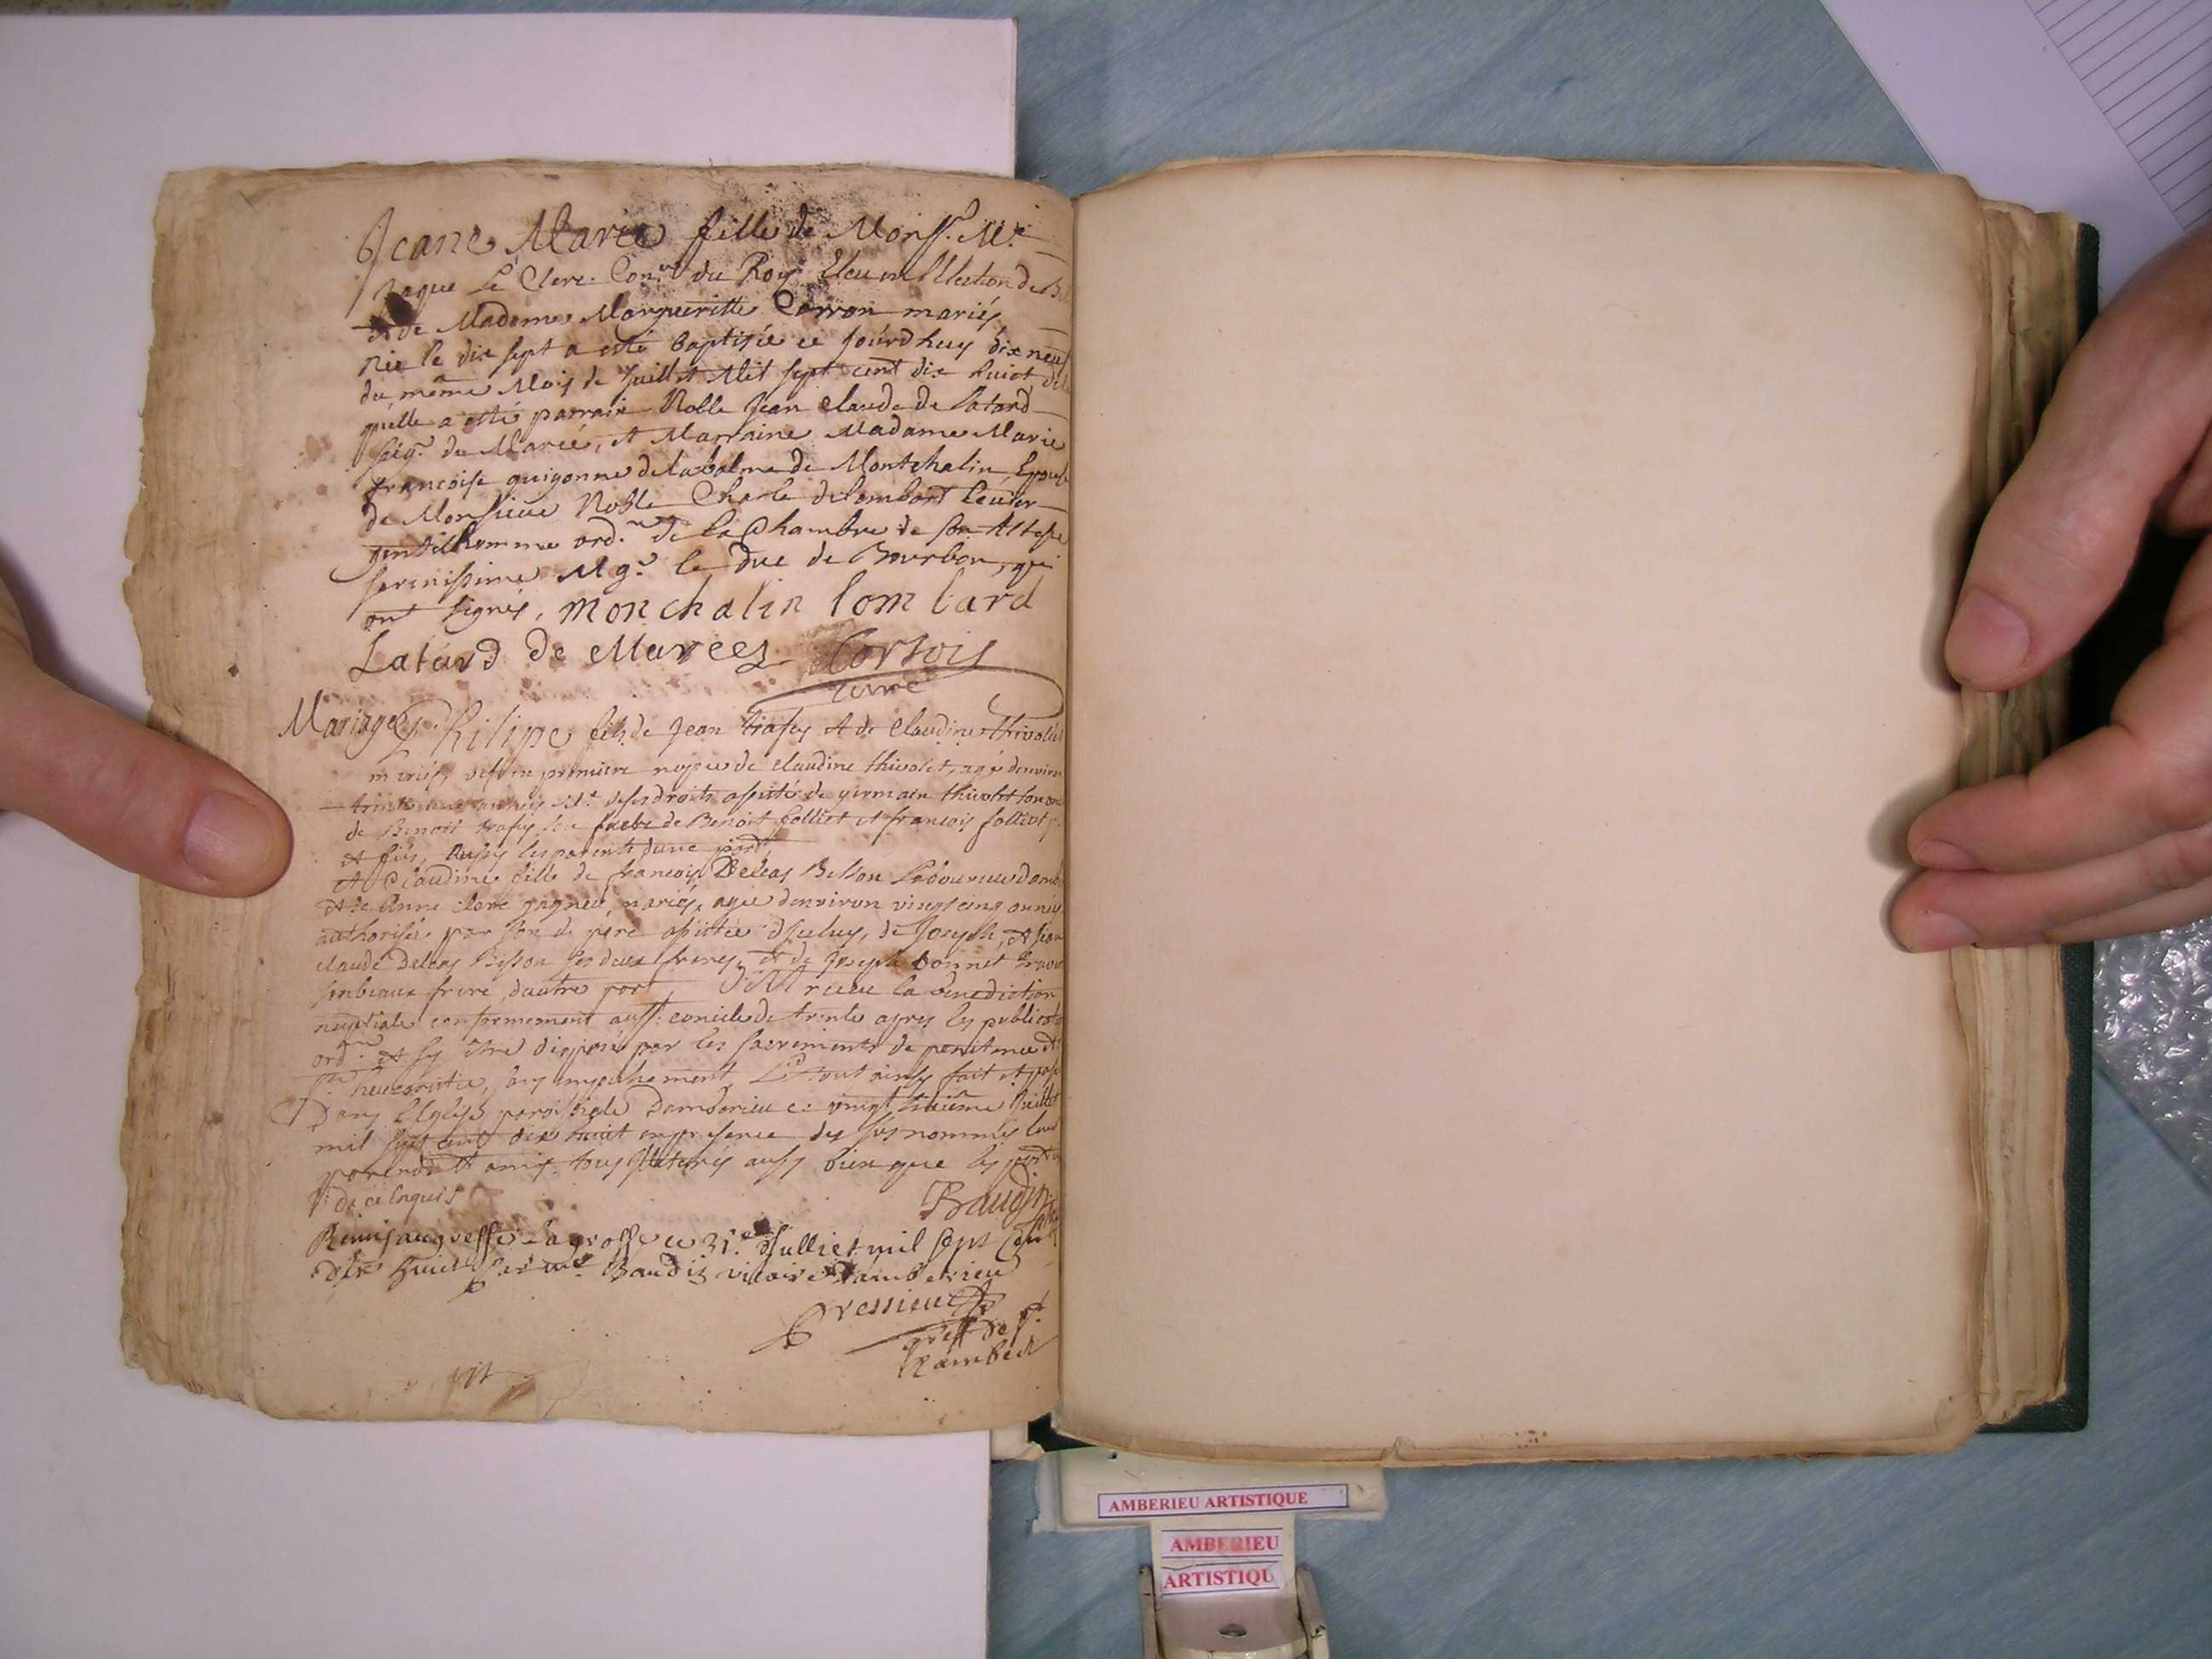 Jeane Marie fille de Monsr. Me
Jaque Le Clerc Conr. du Roy Eleu en l'Election de
et de Madame Margueritte Carron mariés
née le dix sept a esté baptisée ce jourdhuy dix neuf
du même Mois de Juillet Mil sept cent dix huict de
quelle a esté parrain Noble Jean Claude de Latard
seigr. de Marcé, et Marraine Madame Marie
francoise guigonne de labalme de Montchalin Epouse
de Monsieur Noble Charle de lombard
gentilhomme ord.re de la Chambre de son Altesse
serenissime Mgr. le Duc de Bourbon, qui
ont signés. monchalin lombard
Latard de Marcez
curé
Mariage Philipe fils de Jean trafey et de Claudine thivolet
mariés, vef en premiere nopce de claudine thivolet, agé denviron
de ses droits assisté de germain thivolet son
de Benoit trafey son de Benoit folliet et francois folliet
et fils, aussy ses parents dune part
et Claudine fille de francois Deleas Besson
et de Anne clerc gagneu, mariés, agée denviron vingt cinq années
authorisée par son d. pere assistée d'iceluy, de Joseph, et Jean
claude Deleas Besson ses deux freres, et de Joseph bonnet
son beaux frere, dautre part, Ont receu la benediction
nuptiale conformement au st. concile de trente apres les publications
ordres et sy être disposé par les sacrements de penitence et
heucaristie, sans empechement Le tout ainsy fait et passé
Dans l'Eglise paroissiale Damberieu ce vingt Juillet
mil sept cent dix huict en presence des susnommés leurs
parents et amis tous illeterés aussy bien que les parties
de ce Enquis
Baudin
Remis au greffe la grosse ce 31e Julliet mil sept cent
dix huict par me Baudin vicaire d'amberieu
Bressieux
greff de st.
Rambert